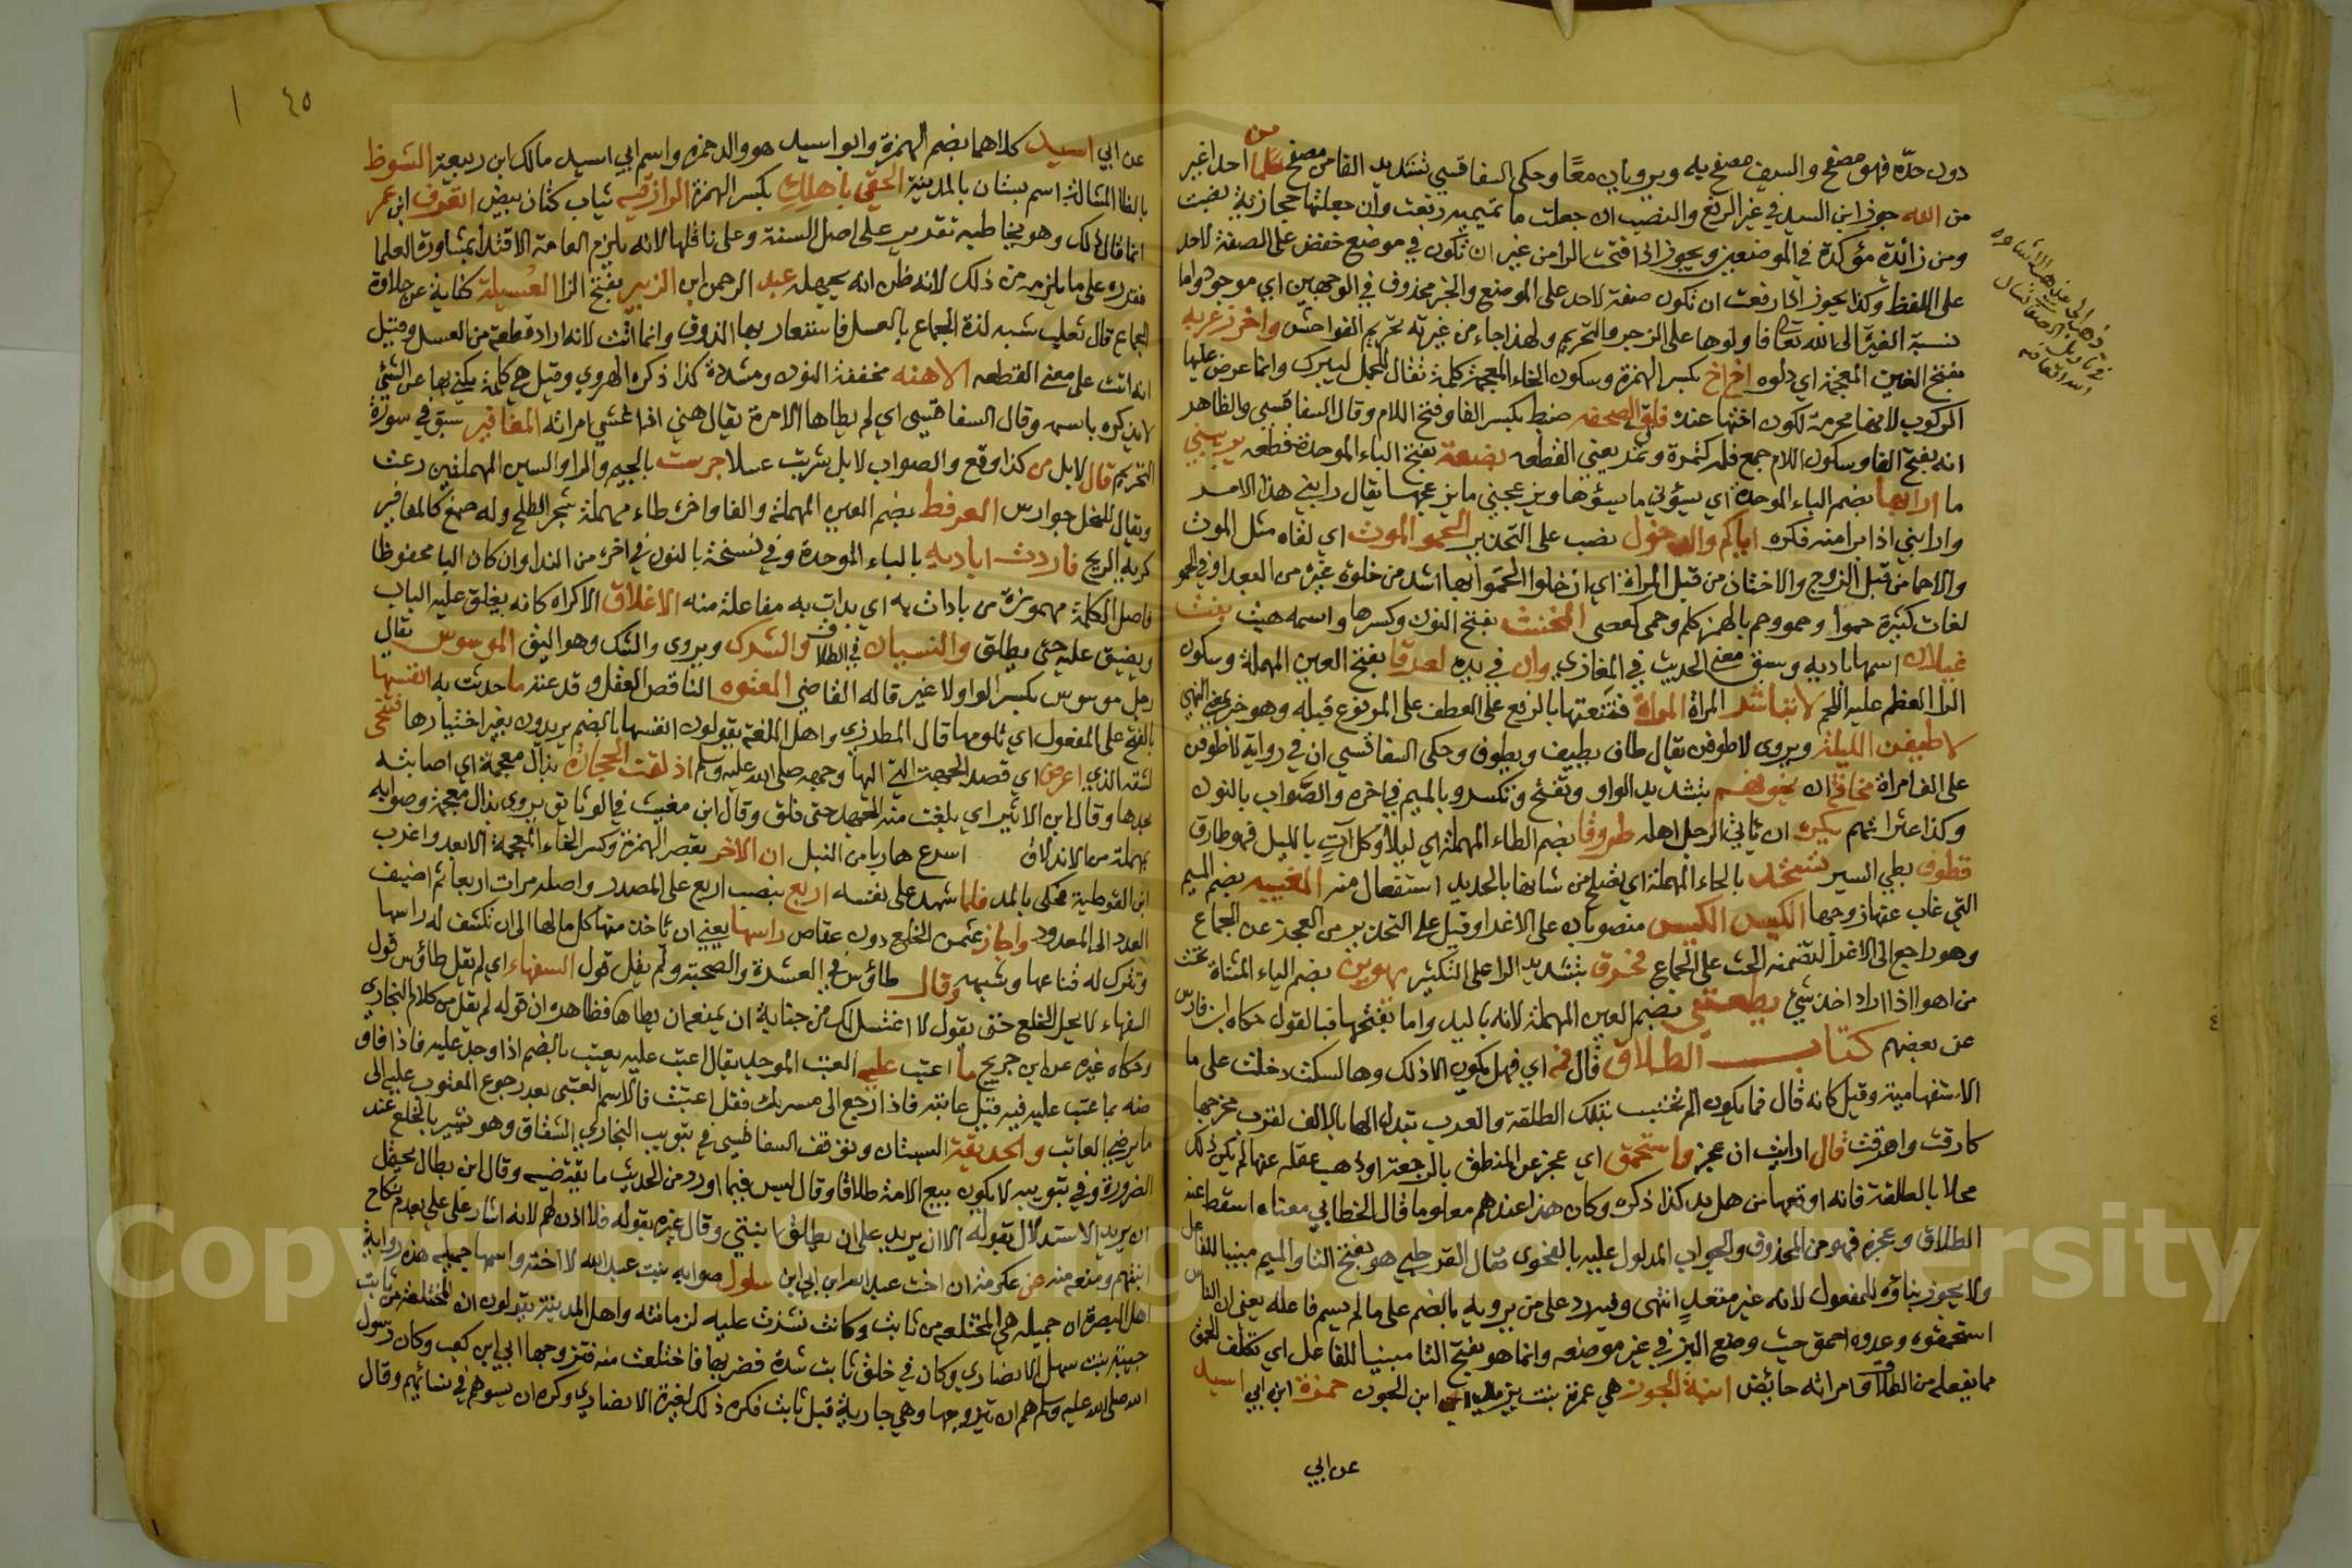 دون حده فهو مصفح والسيف مصفح به ويرويان معًا وحكى السفاقسي تشديد الفا من مصفح ما من احد اغير
من الله جوز ابن السيد في غير الرفع والنصب ان جعلت ما تميمية رفعت وان جعلتها حجازية نصبت
ومن زائدة مؤكدة في الموضعين ويجوز اذا فتحت الرا من غير ان تكون في موضع خفض على الصفة لاحد
على اللفظ وكذا يجوز اذا رفعت ان تكون صفة لاحد على الموضع والخبر محذوف في الوجهين اي موجود واما
نسبة الغيرة الى الله تعالى فاولوها على الزجر والتحريم ولهذا جاء من غيرته تحريم الفواحش واخرز غربه
بفتح الغين المعجمة اي دلوه اخ اخ بكسر الهمزة وسكون الخاء المعجمة كلمة تقال للجمل ليبرك وانما عرض عليها
الركوب لانها محرمة لكون اختها عنده فلق الصحفه ضبط بكسر الفا وفتح اللام وقال السفاقسي والظاهر
انه بفتح الفا وسكون اللام جمع فلقة كتمرة وتمر يعني القطعه بضعة بفتح الباء الموحدة قطعه يريبني
ما ارابها بضم الباء الموحدة اي يسؤني ما يسؤها ويزعجني ما يزعجها يقال رابني هذا الامر
وارابني اذا رامنه فكره اياكم والدخول نصب على التحذير الحمو الموت اي لقاه مثل الموت
والاحما من قبل الزوج والاختان من قبل المراة اي ان خلوا الحمو بها اشد من خلوة غيره من البعدا وفي الحمو
لغات كثيرة حموا وحمو وحم بالهمز كلم وحمى كعصى المخنث بفتح النون وكسرها واسمه هيث بنت
غيلان اسمها باديه وسبق معنى الحديث في المغازي وان في يده لعرقا بفتح العين المهملة وسكون
الرا العظم عليه اللحم لا تباشر المراة المراة فتنعتها بالرفع على العطف على المرفوع قبله وهو خبر بمعنى النهي
لاطيفن الليلة ويروى لاطوفن يقال طاف يطيف ويطوف وحكى السفاقسي ان في رواية لاطوفن
على الف امراة مخافة ان يخونهم بتشديد الواو وتفتح وتكسر وبالميم في اخره والصواب بالنون
وكذا عثراتهم يكره ان ياتي الرجل اهله طروقا بضم الطاء المهملة اي ليلا وكل آت بالليل فهو طارق
قطوف بطي السير تستحد بالحاء المهملة اي تصلح من شانها بالحديد استفعال منه المغيبه بضم الميم
التي غاب عنها زوجها الكيس الكيس منصوبان على الاغرا وقيل على التحذير من العجز عن الجماع
وهو راجع الى الاغرا لتضمنه الحث على الجماع فخرق بتشديد الرا على التكثير يهوين بضم الياء المثناة تحت
من اهوا اذا اراد اخذ شئ يطعنني بضم العين المهملة لانه باليد واما بفتحها فبالقول حكاه ابن فارس
عن بعضهم كتاب الطلاق قال فمه اي فهل يكون الا ذلك وهالسكت دخلت على ما
الاستفهامية وقيل كانه قال فما يكون ان لم تحتسب بتلك الطلقة والعرب تبدل الها بالالف لقرب مخرجها
كارقت واهرقت قال ارايت ان عجز واستحمق اي عجز عن المنطق بالرجعة او ذهب عقله عنها لم يكن ذلك
محلا بالطلقة فانه اوقعها من هل يد كذا ذكره وكان هذا عندهم معلوما قال الخطابي معناه اسقط عنه
الطلاق وعجزه فهو من المحذوف والجواب المدلول عليه بالفحوى فقال القرطبي هو بفتح التا والميم مبنيا للفاعل
ولا يجوز بناؤه للمفعول لانه غير متعد انتهى وفيه رد على من يرويه بالضم على ما لم يسم فاعله يعني ان الناس
استحمقوه وعدوه احمق حيث وضع البز في غير موضعه وانما هو بفتح التا مبنيا للفاعل اي تكلف الحمق
مما يفعله من الطلاق وامراته حائض ابنة الجون هي عمرة بنت يزيد ابن الجون حمزة ابن ابي اسيد
عن ابي
٤٥
عن ابي اسيد كلاهما بضم الهمزة وابو اسيد هو والد حمزه واسم ابي اسيد مالك ابن ربيعة الشوظ
بالظا المشالة اسم بستان بالمدينة الحقي باهلك بكسر الهمزة الرازقيه ثياب كتان بيض اتعرف ابن عمر
انما قال ذلك وهو يخاطبه تقدير على اصل السنة وعلى ناقلها لانه يلزم العامة الاقتدا بمشاورة العلما
فقرره على ما يلزمه من ذلك لانه ظن انه يجهله عبد الرحمن ابن الزبير بفتح الزا العسيلة كناية عن حلاوة
الجماع قال ثعلب شبه لذة الجماع بالعسل فاستعار بها الذوق وانما انث لانه اراد قطعة من العسل وقيل
انه انث على معنى القطعه الاهنه مخففة النون ومشددة كذا ذكره الهروي وقيل هي كلمة يكنى بها عن الشئ
لا يذكره باسمه وقال السفاقسي اي لم يطاها الا مرة يقال هني اذا غشي امراته المغافير سبق في سورة
التحريم قال لا بل من كذا وقع والصواب لا بل شربت عسلا جرست بالجيم والرا والسين المهملتين رعت
ويقال للنحل جوارس العرفط بضم العين المهملة والفا واخره طاء مهملة شجر الطلح وله صمغ كالمغافير
كريه الريح فاردت اباديه بالباء الموحدة وفي نسخة بالنون في اخره من الندا وان كان اليا محفوظا
فاصل الكلمة مهموزة من بادات به اي بدات به مفاعلة منه الاغلاق الاكراه كانه يغلق عليه الباب
ويضيق عليه حتى يطلق والنسيان في الطلاق والشرك ويروى والشك وهو اليق الموسوس يقال
رجل موسوس بكسر الواو ولا غير قاله القاضي المعتوه الناقص العقل وقد عته ما حدثت به انفسها
بالفتح على المفعول اي قلوبها قال المطرزي واهل اللغة يقولون انفسها بالضم يريدون بغير اختيارها فتنحى
لشقه الذي اعرض اي قصد الجهة التي اليها وجهه صلى الله عليه وسلم اذلقته الحجارة بذال معجمة اي اصابته
بحدها وقال ابن الاثير اي بلغت منه الجهد حتى قلق وقال ابن مغيث في الوثائق يروى بذال معجمة وصوابه
بمهملة من الاندلاق اسرع هاربا من القتل ان الاخر بقصر الهمزة وكسر الخاء المعجمة الابعد واغرب
ابن القوطية فحكى بالمد فلما شهد على نفسه اربع بنصب اربع على المصدر واصله مرات اربعا ثم اضيف
العدد الى المعدود واجاز عثمن الخلع دون عقاص راسها يعني ان ياخذ منها كل مالها الى ان تكشف له راسها
وتترك له قناعها وشبهه وقال طاؤس في العشرة والصحبة ولم يقل قول السفهاء اي لم يقل طاؤس قول
السفهاء لا يحل الخلع حتى يقول لا اغتسل لك من جنابة ان يمنعه ان يطاها فظاهره ان قوله لم يقل من كلام البخاري
وحكاه غيره عن ابن جريج ما اعتب عليه العتب الموجدة يقال عتب عليه يعتب بالضم اذا وجد عليه فاذا فاق
منه بما عتب عليه فيه قيل عاتبه فاذا رجع الى مسرتك فقل اعتبت فالاسم العتبى بعد رجوع المعتوب عليه الى
ما يرضي العاتب والحديقة البستان وتوقف السفاقسي في تبويب البخاري الشقاق وهو تشير بالخلع عند
الضرورة وفي تبويبه لا يكون بيع الامة طلاقا وقال ليس فيما اورد من الحديث ما يقتضيه وقال ابن بطال يحتمل
ان يريد الاستدلال بقوله الا ان يريد على ان يطلق ابنتي وقال غيره بقوله فلا اذن لهم لانه اشار على علي بعدم نكاح
ابنتهم ومنعه منه عن عكرمة ان اخت عبد الله ابن ابي ابن سلول صوابه بنت عبد الله لا اخته واسمها جميلة هذه رواية
اهل البصرة ان جميله هي المختلعه من ثابت وكانت نشزت عليه واهل المدينة يقولون ان المختلعة من ثابت
حبيبة بنت سهل الانصاري وكان في خلق ثابت شدة فضربها فاختلعت منه فتزوجها ابي ابن كعب وكان رسول
الله صلى الله عليه وسلم هم ان يتزوجها وهي جارية قبل ثابت فكره ذلك لغيرة الانصاري وكره ان يسؤهم في نسائهم وقال